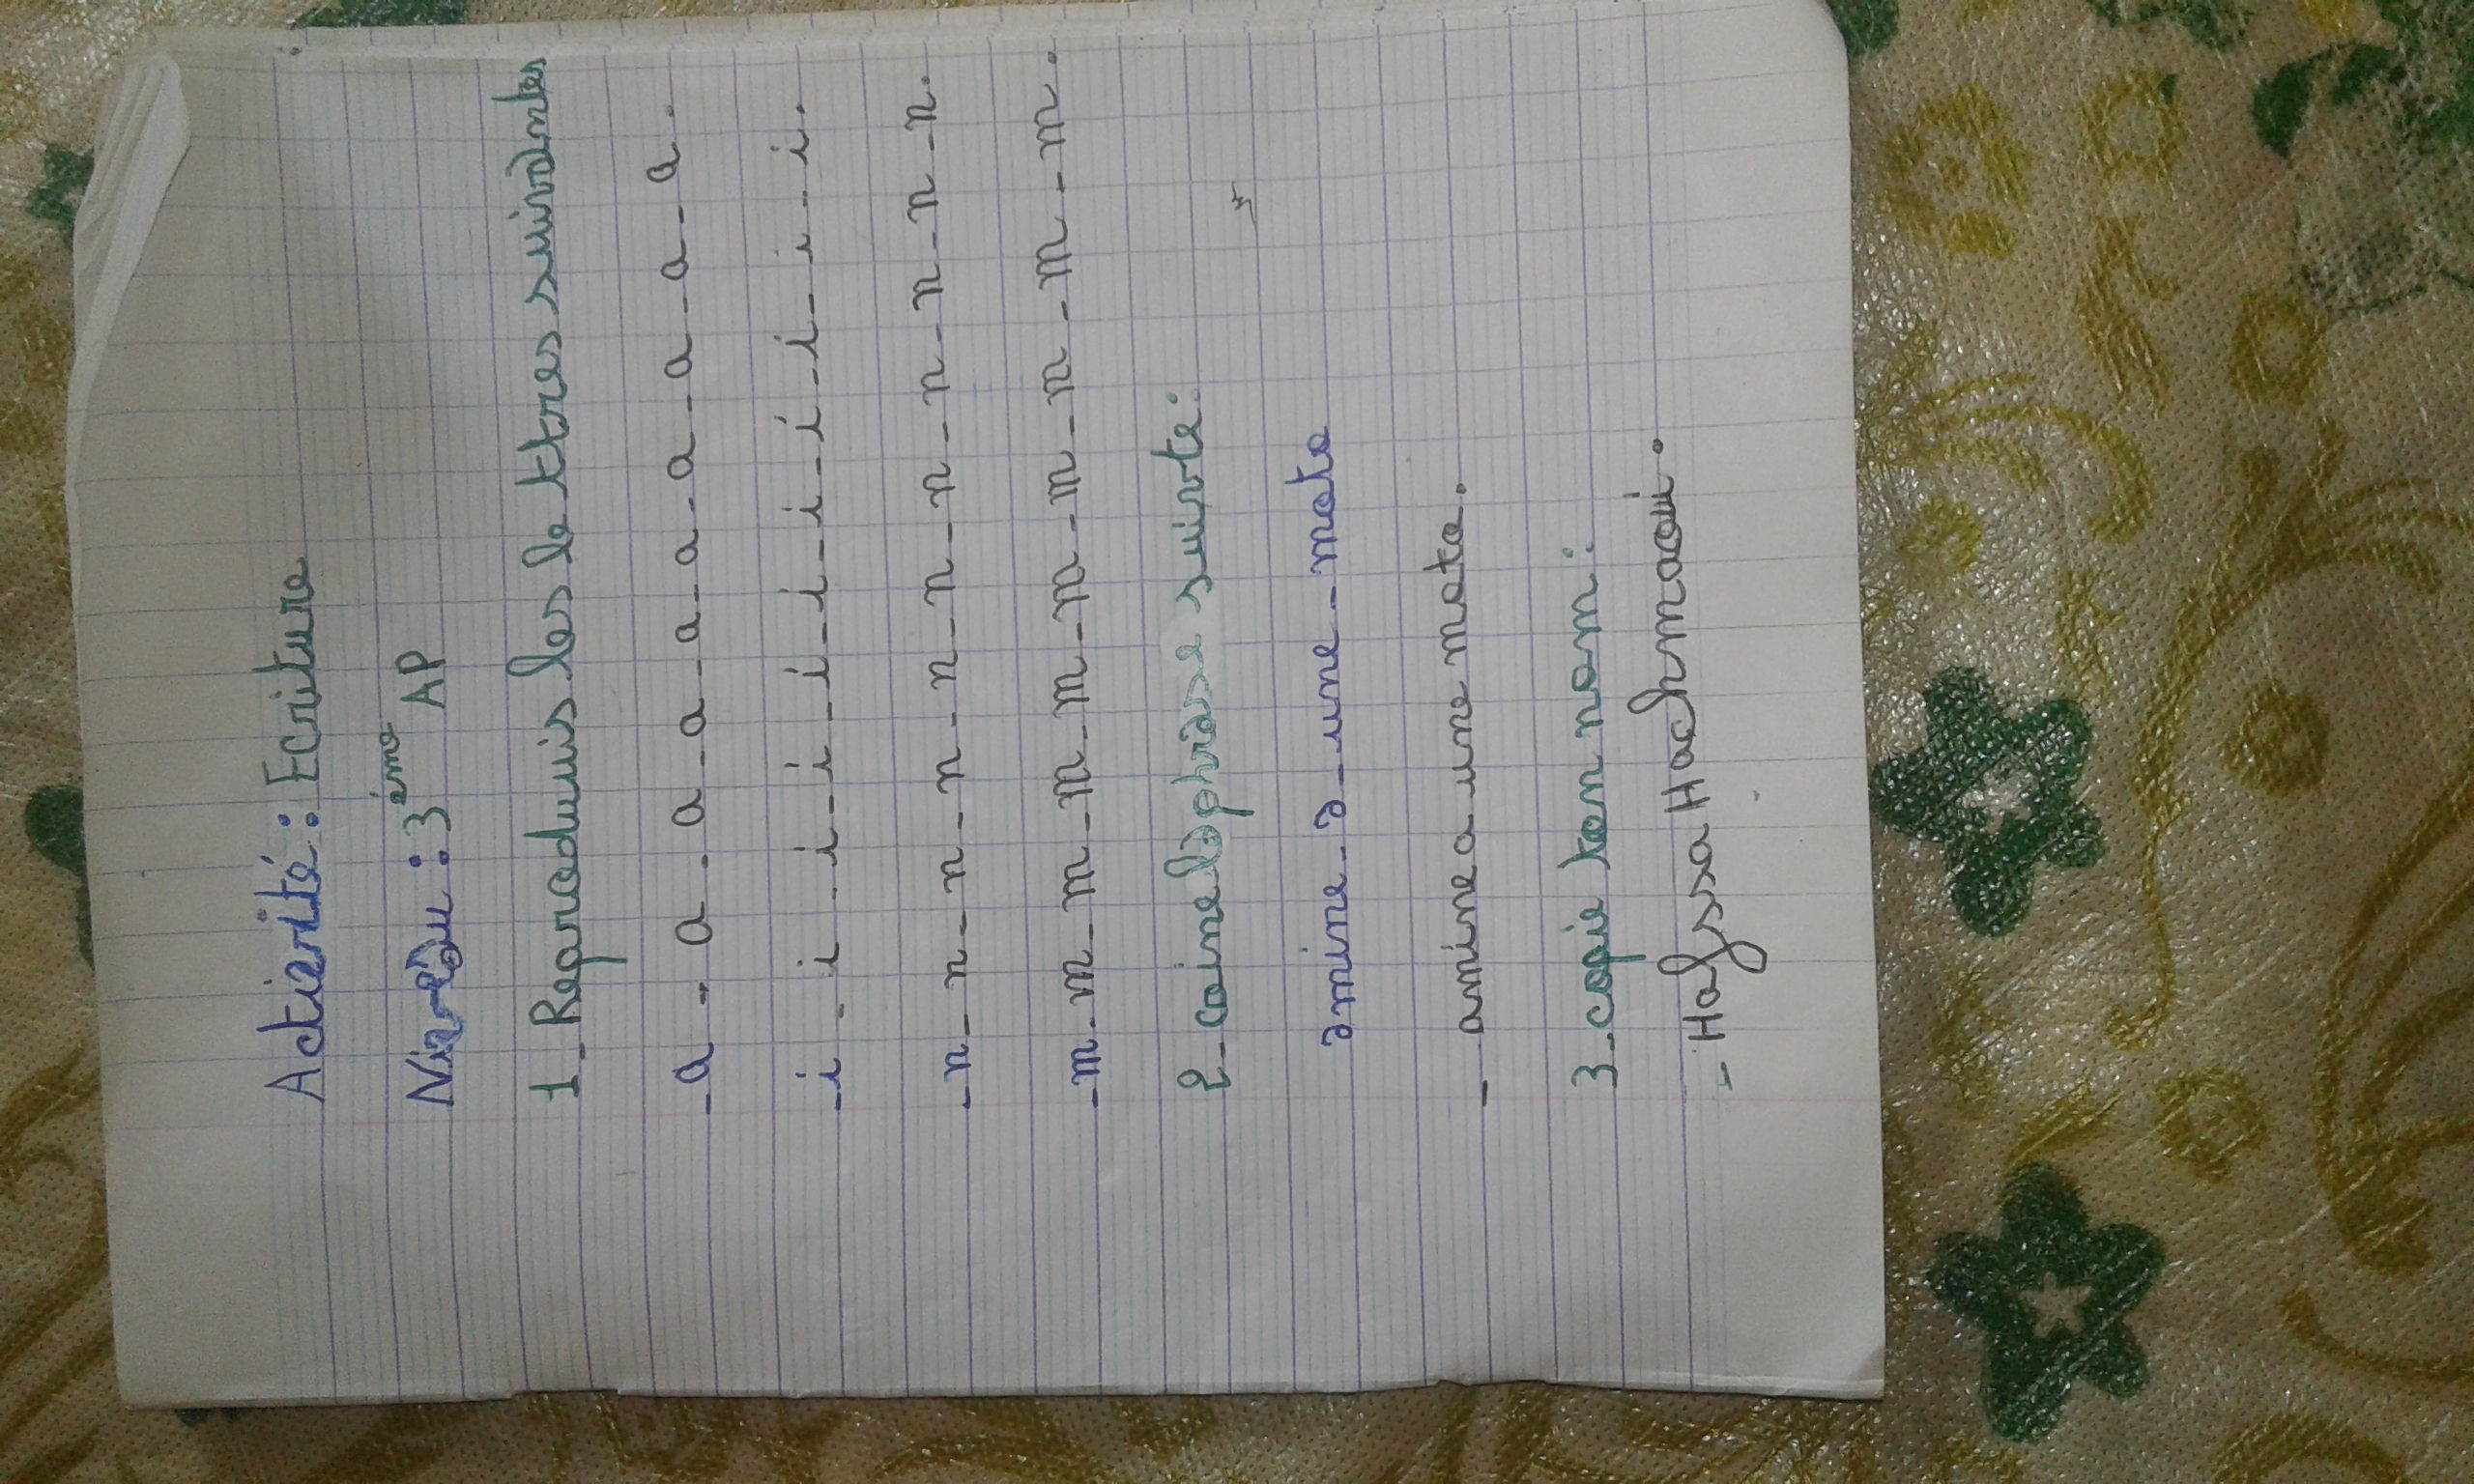 Activité : Ecriture
Niveau : 3 éme AP
1_ Reproduuis les le ttres suivantes
_ a _ a _ a _ a _ a _ a _ a _ a _ a _ a .
_ i _ i _ i _ i _ i _ i _ i _ i _ i _ i _ i .
_ n _ n _ n _ n _ n _ n _ n _ n _ n _ n _ n .
_ m _ m _ m _ m _ m _ m _ m _ m _ m _ m .
2_ coine la phrase suivte :
amine _ a _ une _ moto
_ amine a une moto .
3_ copie ton nom :
_ Hafssa Hachmaoui .